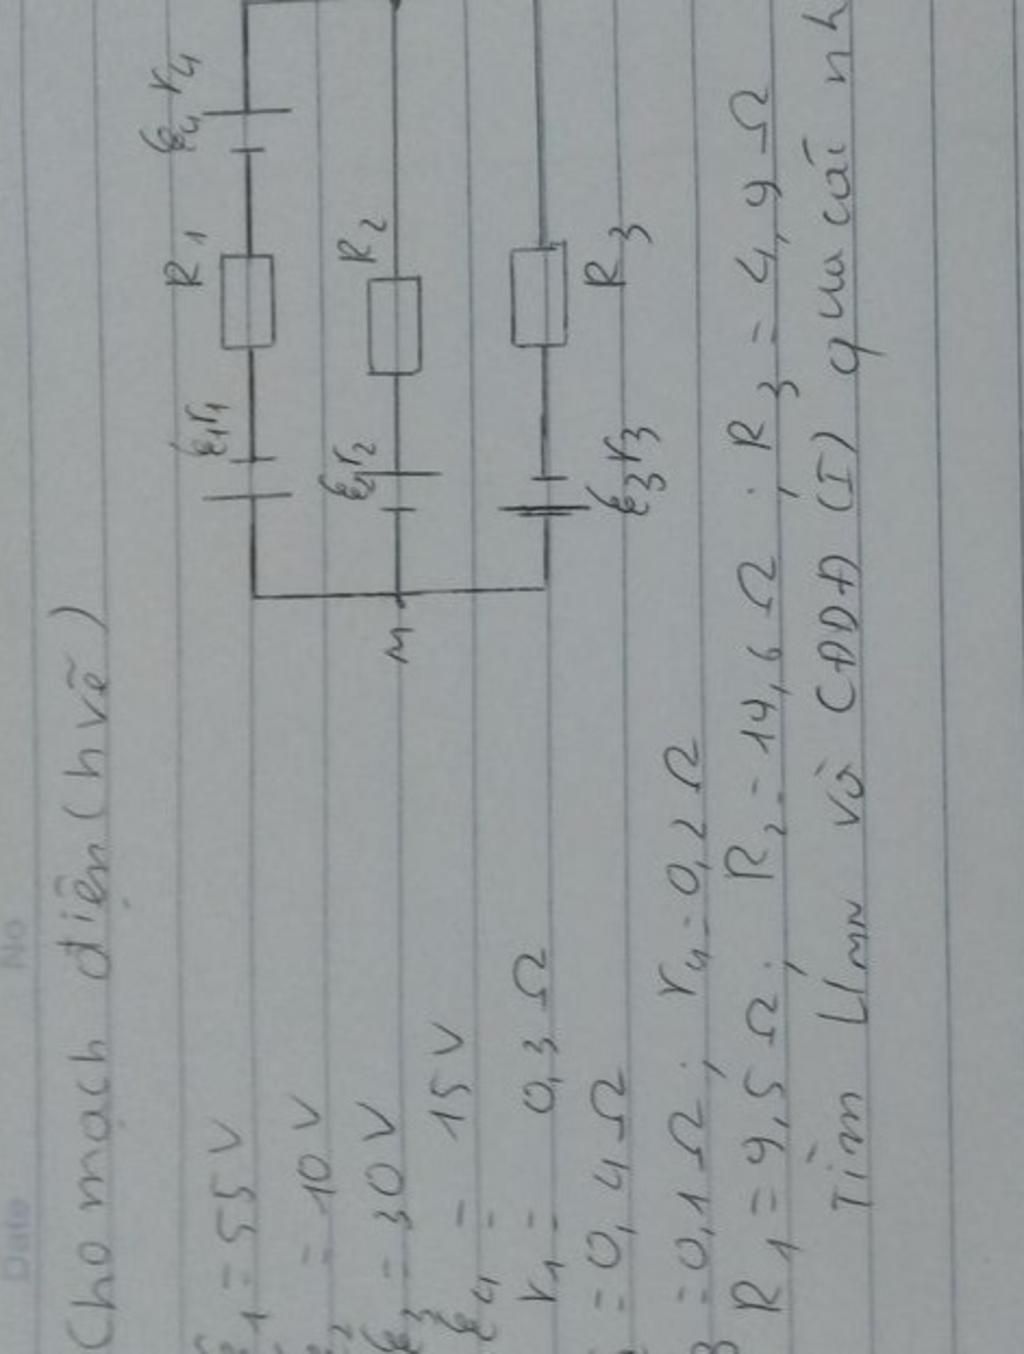 Date No
Cho mạch điện (h vẽ)
ξ1 = 55 V
ξ2 = 10 V
ξ3 = 30 V
ξ4 = 15 V
r1 = 0,3 Ω
= 0,4 Ω
3 = 0,1 Ω; r4 = 0,2 Ω
R1 = 9,5 Ω; R2 = 14,6 Ω; R3 = 4,9 Ω
Tìm UMN và CĐDĐ (I) qua các nh
ξ1r1 R1 ξ4 r4
M ξ2r2 R2
ξ3r3 R3